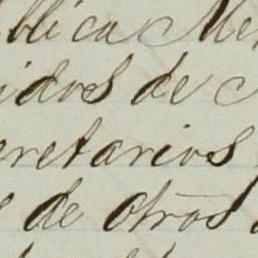 blica Me
idos de
cretarios
de otros